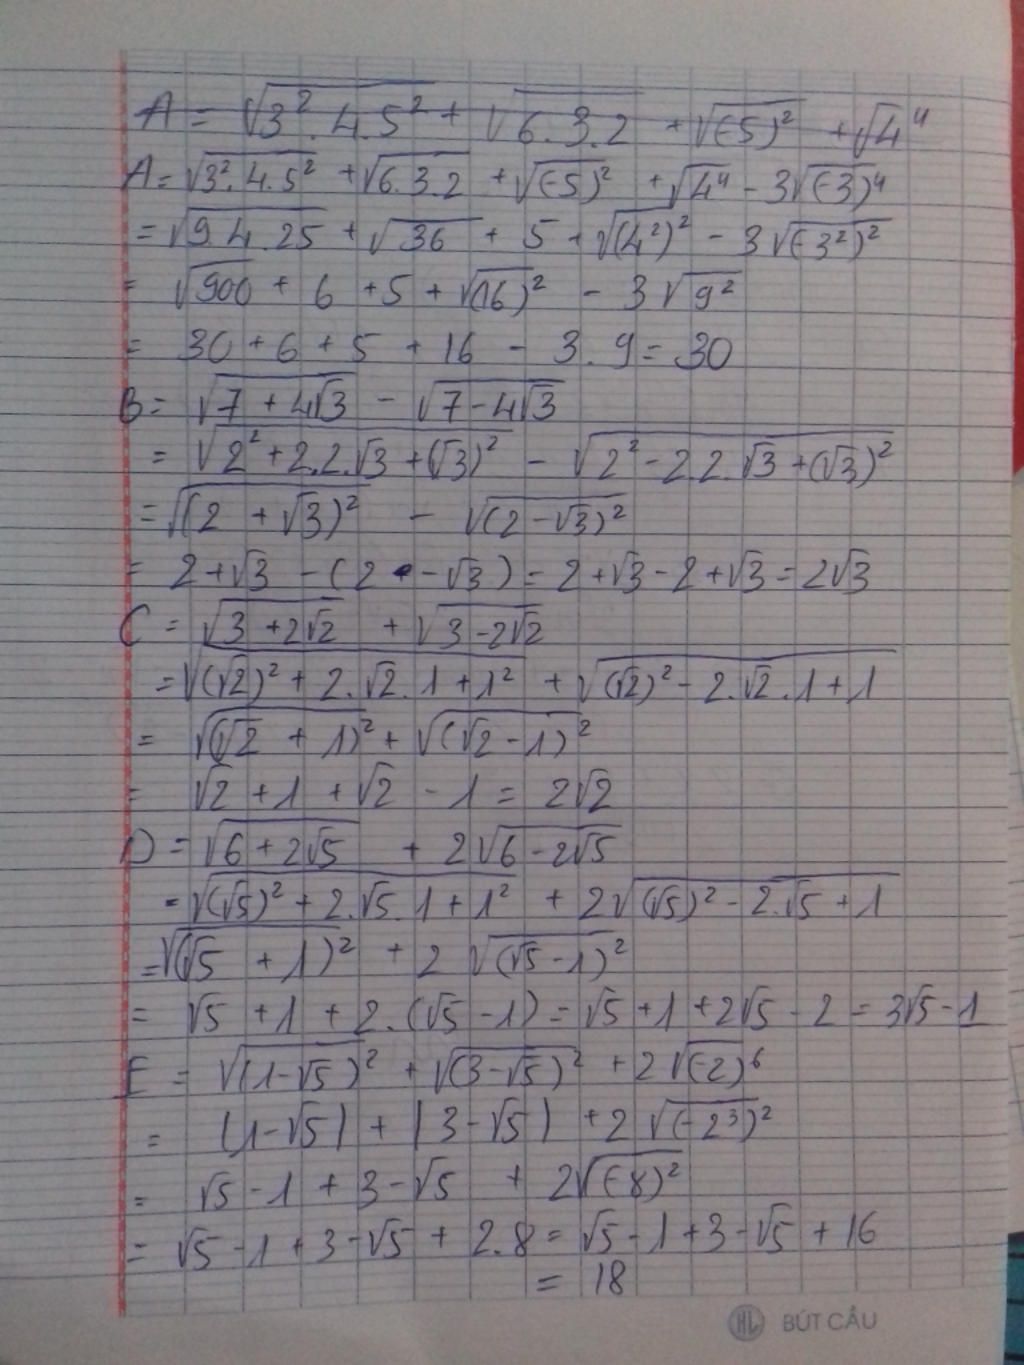 A = √3².4.5² + √6.3.2 + √(-5)² + √4⁴
A = √3².4.5² + √6.3.2 + √(-5)² + √4⁴ - 3√(-3)⁴
= √9.4.25 + √36 + 5 + √(4²)² - 3√(-3²)²
= √900 + 6 + 5 + √(16)² - 3√9²
= 30 + 6 + 5 + 16 - 3.9 = 30
B = √7 + 4√3 - √7 - 4√3
= √2² + 2.2.√3 + (√3)² - √2² - 2.2.√3 + (√3)²
= √(2 + √3)² - √(2 - √3)²
= 2 + √3 - (2 - √3) = 2 + √3 - 2 + √3 = 2√3
C = √3 + 2√2 + √3 - 2√2
= √(√2)² + 2.√2.1 + 1² + √(√2)² - 2.√2.1 + 1
= √(√2 + 1)² + √(√2 - 1)²
= √2 + 1 + √2 - 1 = 2√2
D = √6 + 2√5 + 2√6 - 2√5
= √(√5)² + 2.√5.1 + 1² + 2√(√5)² - 2.√5 + 1
= √(√5 + 1)² + 2√(√5 - 1)²
= √5 + 1 + 2.(√5 - 1) = √5 + 1 + 2√5 - 2 = 3√5 - 1
E = √(1 - √5)² + √(3 - √5)² + 2√(-2)⁶
= |1 - √5| + |3 - √5| + 2√(-2³)²
= √5 - 1 + 3 - √5 + 2√(-8)²
= √5 - 1 + 3 - √5 + 2.8 = √5 - 1 + 3 - √5 + 16
= 18
HL BÚT CÂU